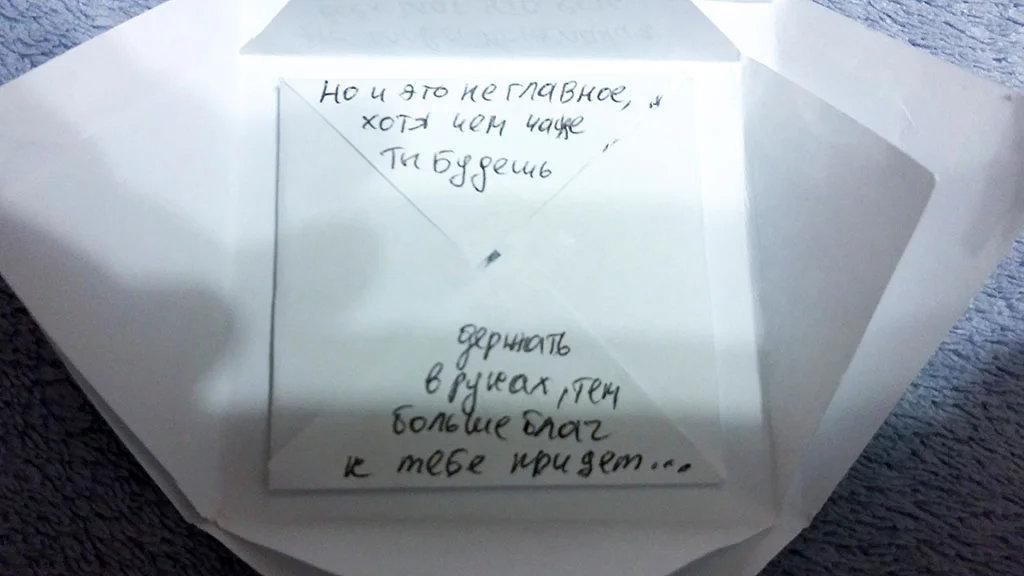 Но и это не главное,
хотя чем чаще
ты будешь
держать
в руках, тем
больше благ
к тебе придет...